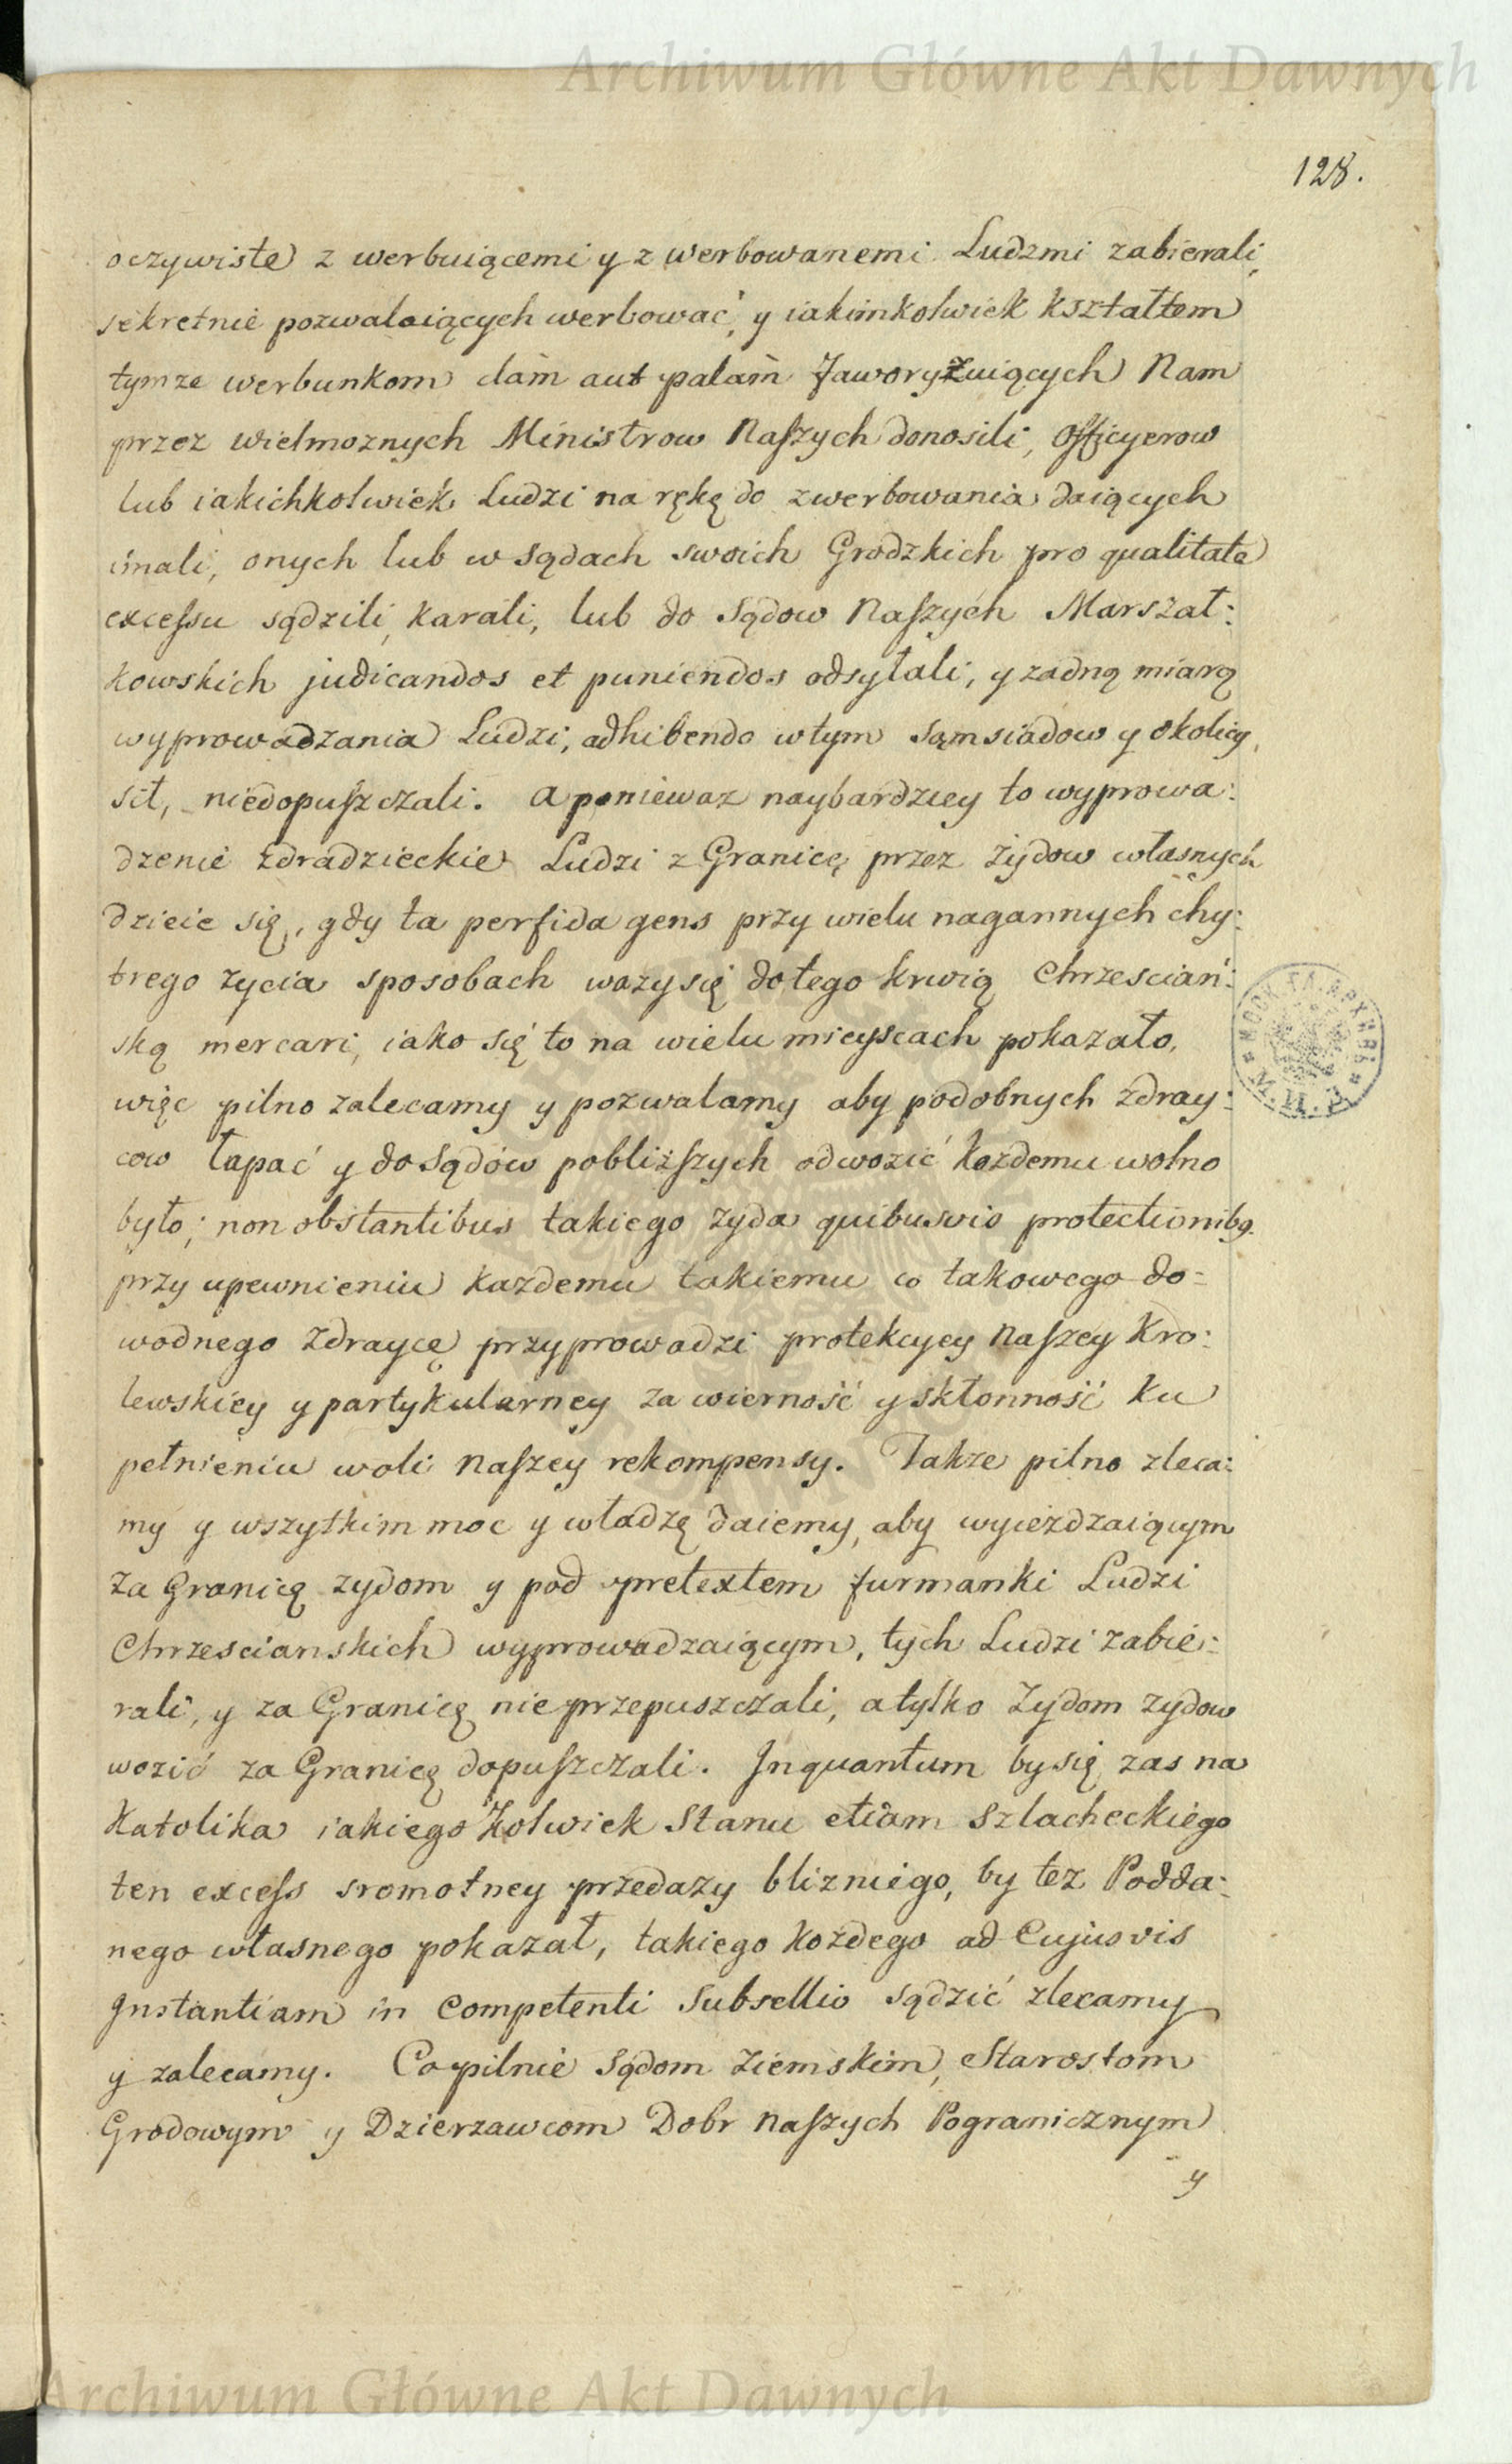 Archiwum Główne Akt Dawnych
128.
oczywiste z werbuiącemi y z werbowanemi Ludzmi zabierali,
sekretnie pozwalaiących werbować, y iakimkolwiek kształtem
tymze werbunkom clàm aut palàm faworyzuiących Nam
przez wielmoznych Ministrow Naszych donosili, Officyerow
lub iakichkolwiek Ludzi na rękę do zwerbowania daiących
imali, onych lub w Sądach swoich Grodzkich pro qualitate
excessu sądzili, karali, lub do Sądow Naszych Marszał:
kowskich judicandos et puniendos odsyłali, y zadną miarą
wyprowadzania Ludzi, adhibendo wtym sąmsiadow y okolicy
sił, niedopuszczali. A poniewaz naybardziey to wyprowa:
dzenie zdradzieckie Ludzi z Granicę przez Zydow własnych
dzieie się, gdy ta perfida gens przy wielu nagannych chy:
trego zycia sposobach wazy się do tego krwią Chrzesciań:
ską mercari, iako się to na wielu mieyscach pokazało,
więc pilno zalecamy y pozwalamy aby podobnych zdray:
cow łapać y do Sądów pobliższych odwozić kazdemu wolno
było; non obstantibus takiego zyda quibusvis protectionibq.
przy upewnieniu kazdemu takiemu co takowego do=
wodnego zdraycę przyprowadzi protekcyey Naszey Kro:
lewskiey y partykularney za wierność y skłonność ku
pełnieniu woli Naszey rekompensy. Takze pilno zleca:
my y wszytkim moc y władzę daiemy, aby wyiezdzaiącym
za Granicę zydom y pod pretextem furmanki Ludzi
Chrzescianskich wyprowadzaiącym, tych Ludzi zabie:
rali, y za Granicę nie przepuszczali, a tylko Zydom zydow
wozić za Granicę dopuszczali. Inquantum by się zas na
Katolika iakiego kolwiek Stanu etiam Szlacheckiego
ten excess sromotney przedazy blizniego, by tez Podda:
nego własnego pokazał, takiego kozdego ad Cujusvis
Instantiam in Competenti Subsellio sądzić zlecamy
y zalecamy. Co pilnie Sądom Ziemskim, Starostom
Grodowym y Dzierzawcom Dobr Naszych Pogranicznym
y
Archiwum Główne Akt Dawnych